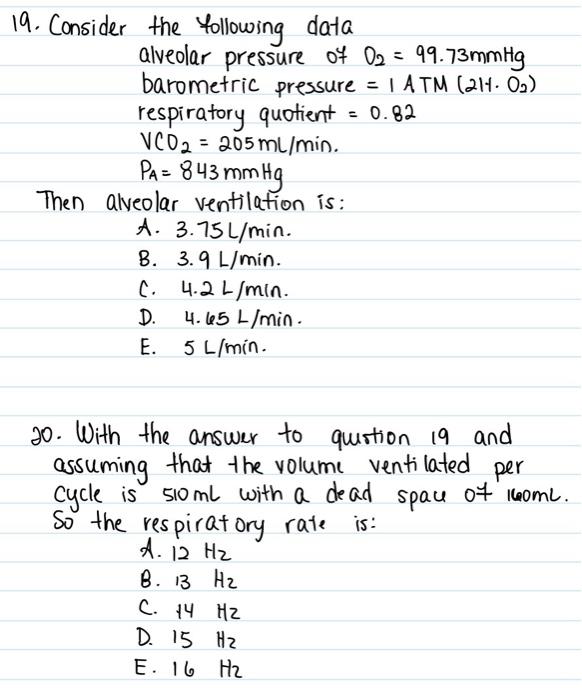 19. Consider the following data
alveolar pressure of O2 = 99.73mmHg
barometric pressure = 1 ATM (21%. O2)
respiratory quotient = 0.82
VCO2 = 205 mL/min.
PA = 843 mmHg
Then alveolar ventilation is:
A. 3.75 L/min.
B. 3.9 L/min.
C. 4.2 L/min.
D. 4.65 L/min.
E. 5 L/min.
20. With the answer to qustion 19 and
assuming that the volume ventilated per
cycle is 510 mL with a dead space of 160mL.
So the respiratory rate is:
A. 12 Hz
B. 13 Hz
C. 14 Hz
D. 15 Hz
E. 16 Hz